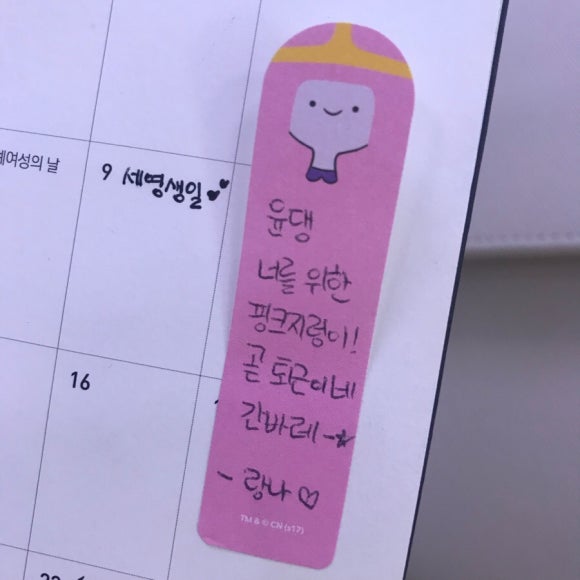 여성의 날
9 세영생일
윤댕
너를 위한
핑크지렁이!
곧 퇴근이네
간바레~☆
- 랑나 ♡
TM & © CN (s17)
16